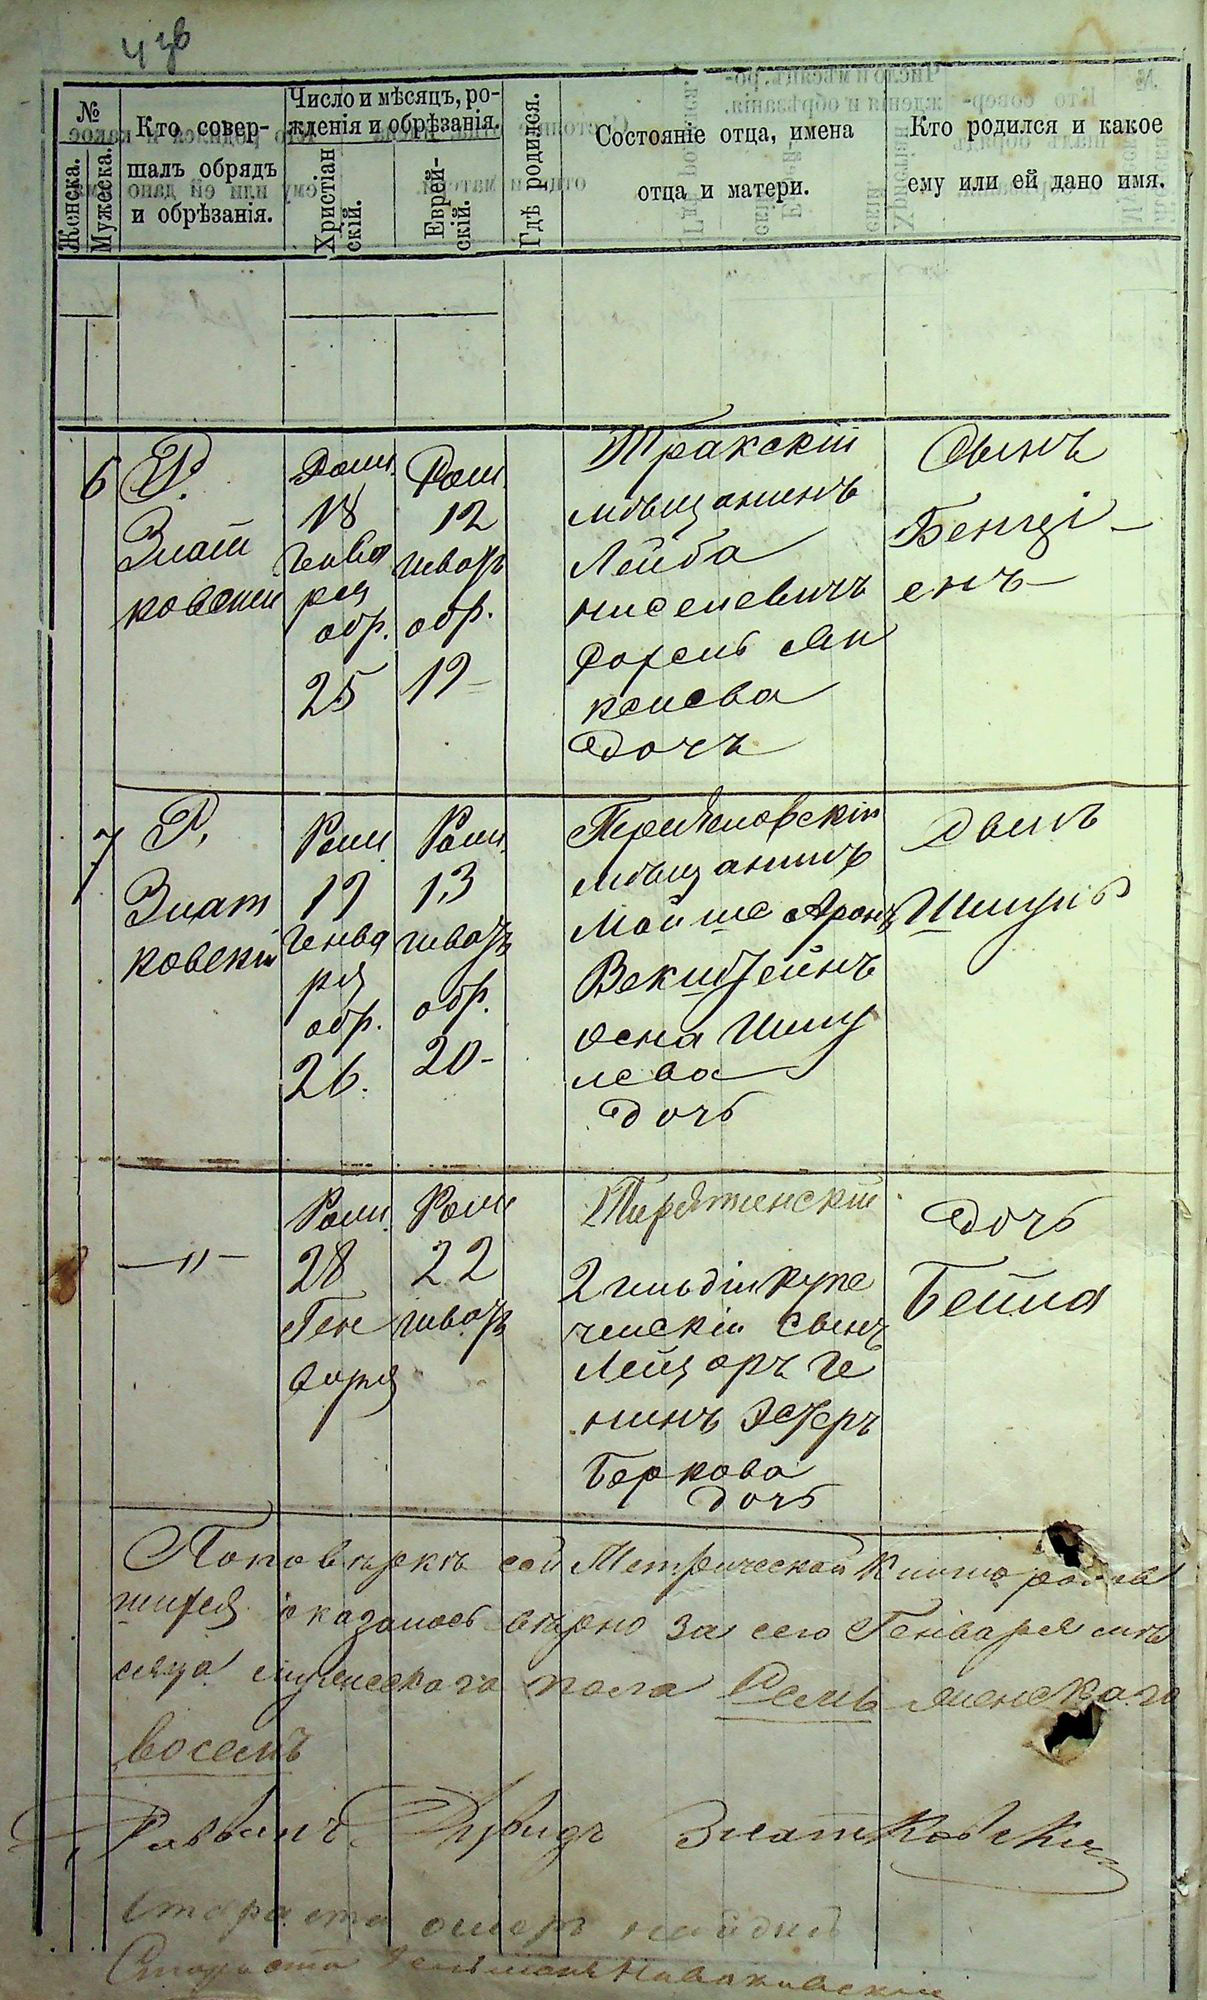 №
Женска.
Мужеска.
Кто совер-
шалъ обрядъ
и обрѣзанія.
Число и мѣсяцъ, ро-
жденія и обрѣзанія.
Христіан
скій.
Еврей-
скій.
Гдѣ родился.
Состояніе отца, имена
отца и матери.
Кто родился и какое
ему или ей дано имя.
6
Р.
Злат
ковскій
Роди.
18
Генва
ря
обр.
25
Роди.
12
шватъ
обр.
19
Тракскій
мѣщанинъ
Лейба
Ниселевичъ
Янкелева
дочъ
Сынъ
Бенці-
енъ
7
Р.
Злат
ковскій
Роди.
19
Генва
ря
обр.
26.
Роди.
13
шватъ
обр.
20-
мѣщанинъ
Мойше Аронъ
Векштейнъ
Осна Шму
лева
дочь
Сынъ
Шмуль
8
—"—
Роди.
28
Ген
варя
Роди
22
шватъ
Пирятинскій
2 гильдіи купе
ческій сынъ
Лейзоръ Ге
нинъ Эстеръ
Беркова
дочь
Дочь
Бейла
По повѣркѣ сей Метрической книги родив
шихся оказалось вѣрно за сего Генваря мѣ
сяца мужескаго пола Семь женскаго
восемъ
Раввинъ Дувидъ Златковскій
Староста
Староста